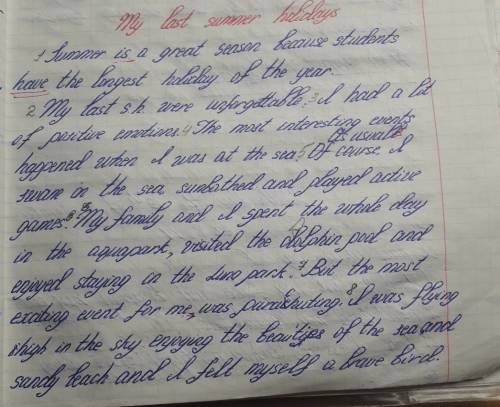 My last summer holidays
1 Summer is a great season because students
have the longest holiday of the year.
2 My last s.h. were unforgettable. 3 I had a lot
of positive emotions. 4 The most interesting events
happened when I was at the sea. 5 As usual Of course I
swam in the sea, sunbathed and played active
games. 6 My family and I spent the whole day
in the aquapark, visited the dolphin pool and
enjoyed staying in the Luna park. 7 But the most
exciting event for me, was parachuting. 8 I was flying
high in the sky enjoying the beauties of the sea and
sandy beach and I felt myself a brave bird.